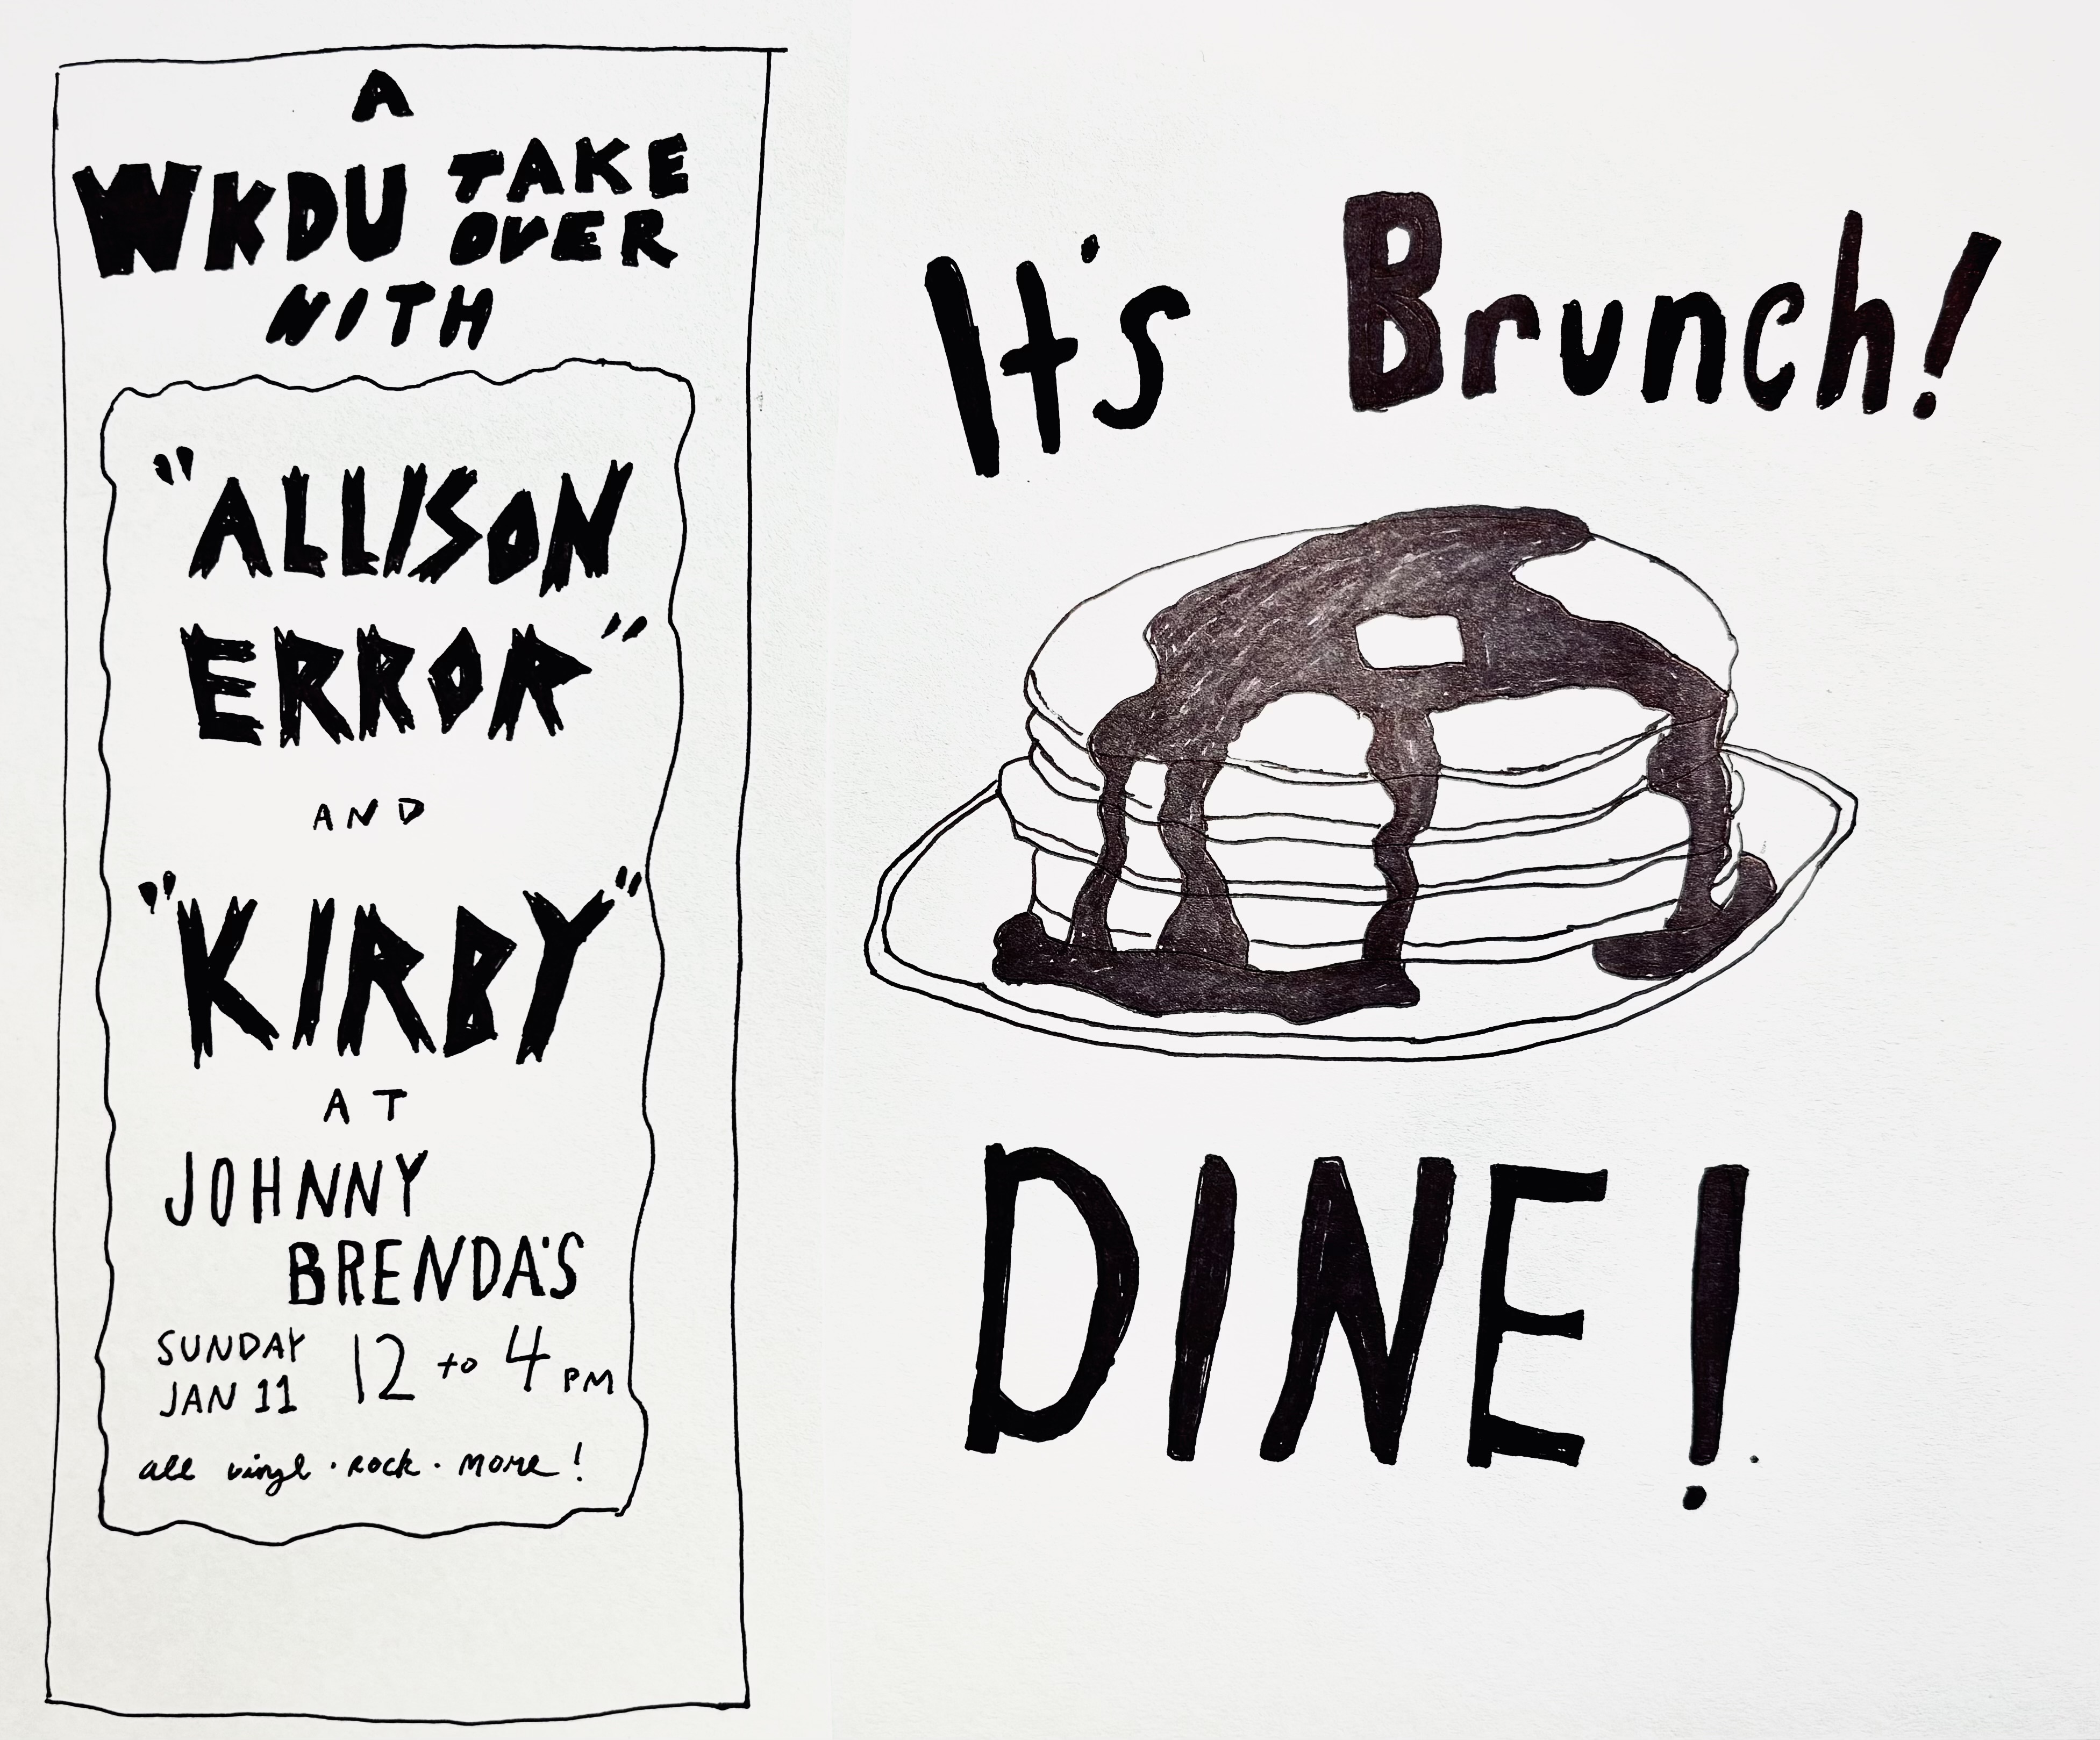 A
WKDU TAKE
OVER
WITH
"ALLISON
ERROR"
AND
"KIRBY"
AT
JOHNNY
BRENDA'S
SUNDAY
JAN 11
12 to 4 PM
all vinyl · rock · more!
It's Brunch!
DINE!